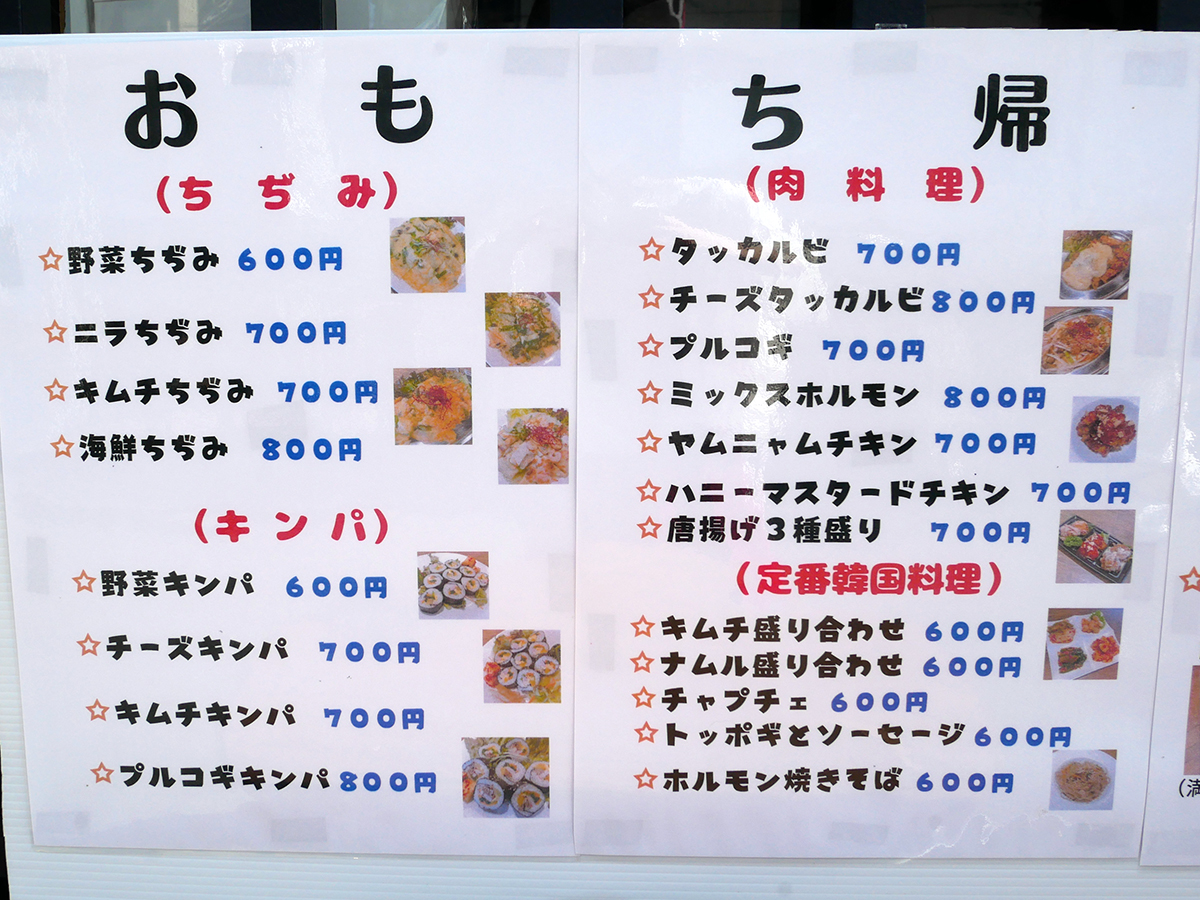 おも
(ちぢみ)
☆野菜ちぢみ 600円
☆ニラちぢみ 700円
☆キムチちぢみ 700円
☆海鮮ちぢみ 800円
(キンパ)
☆野菜キンパ 600円
☆チーズキンパ 700円
☆キムチキンパ 700円
☆プルコギキンパ 800円
ち帰
(肉料理)
☆タッカルビ 700円
☆チーズタッカルビ 800円
☆プルコギ 700円
☆ミックスホルモン 800円
☆ヤムニャムチキン 700円
☆ハニーマスタードチキン 700円
☆唐揚げ3種盛り 700円
(定番韓国料理)
☆キムチ盛り合わせ 600円
☆ナムル盛り合わせ 600円
☆チャプチェ 600円
☆トッポギとソーセージ 600円
☆ホルモン焼きそば 600円
☆
(満